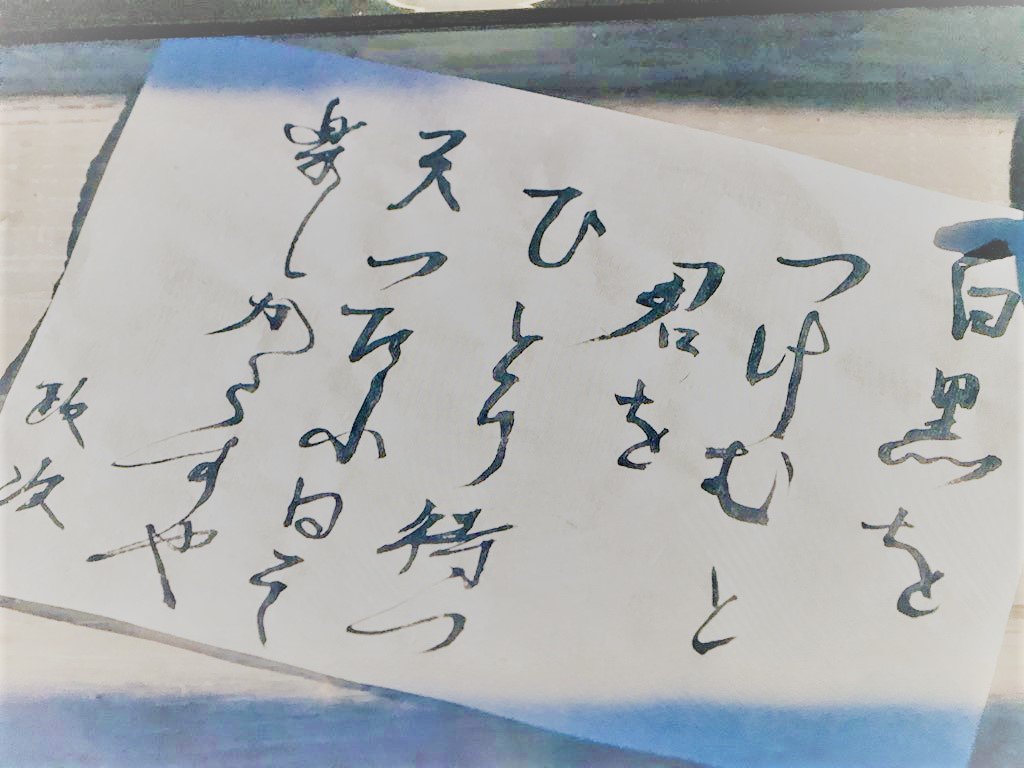 白黒を
つけむと
君を
ひとり待つ
天つたふ日そ
楽しからすや
政次